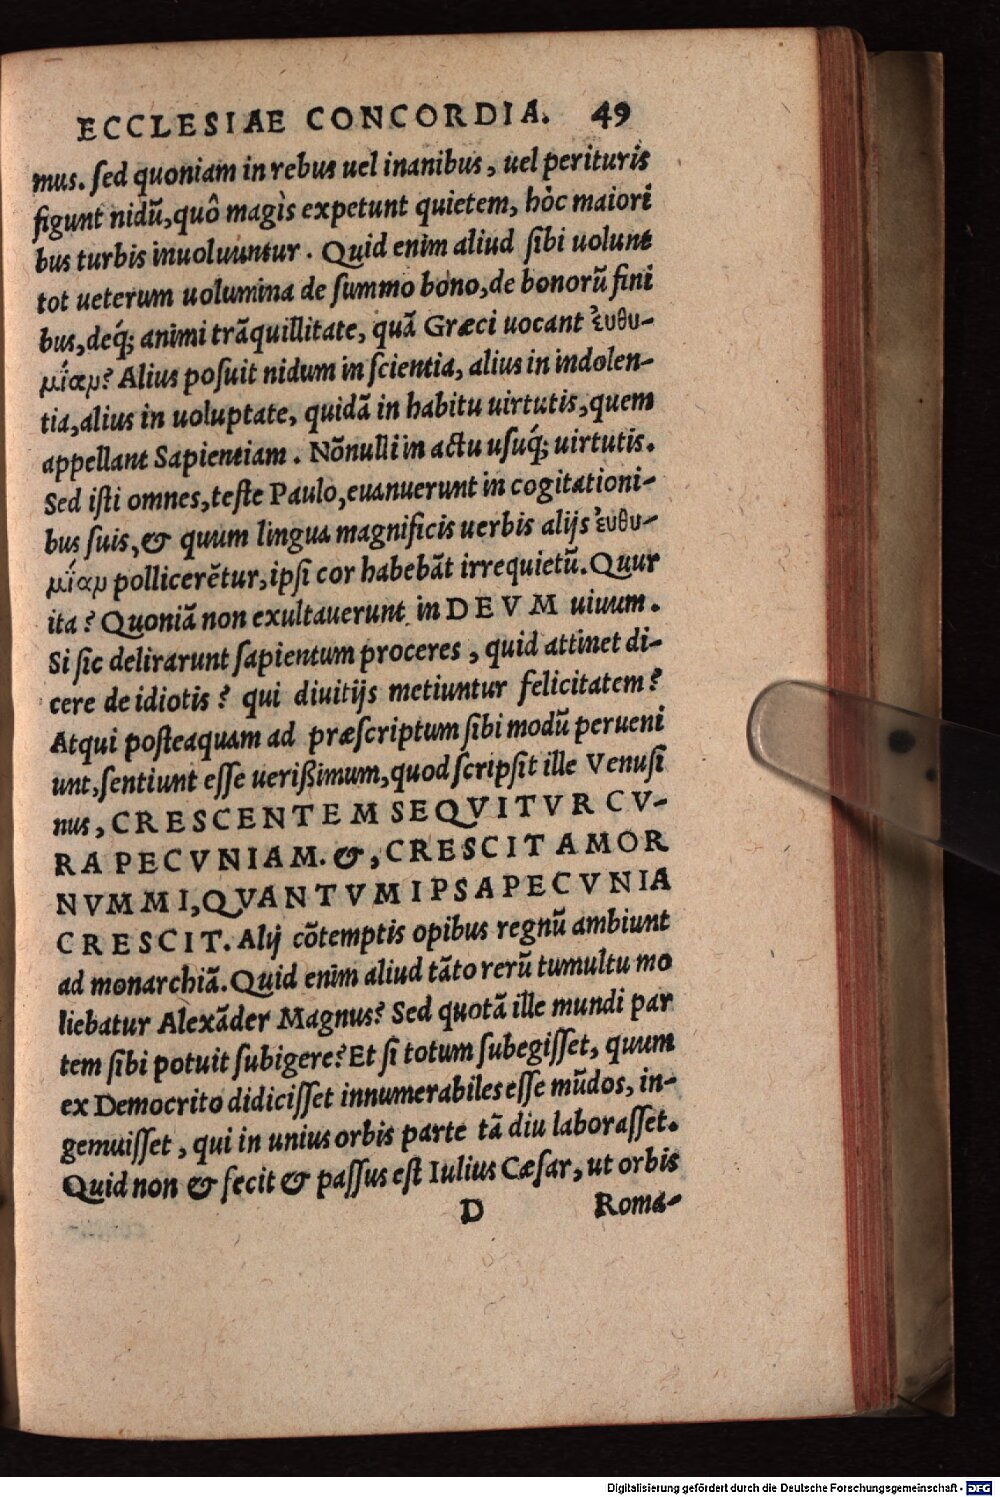 ECCLESIAE CONCORDIA. 49
mus. sed quoniam in rebus uel inanibus, uel perituris
figunt nidū, quô magìs expetunt quietem, hôc maiori
bus turbis inuoluuntur. Quid enim aliud sibi uolunt
tot ueterum uolumina de summo bono, de bonorū fini
bus, deq́; animi trāquillitate, quā Græci uocant ἐυθυ-
μίαμ? Alius posuit nidum in scientia, alius in indolen-
tia, alius in uoluptate, quidā in habitu uirtutis, quem
appellant Sapientiam. Nōnulli in actu usuq́; uirtutis.
Sed isti omnes, teste Paulo, euanuerunt in cogitationi-
bus suis, & quum lingua magnificis uerbis alijs ἐυθυ-
μίαμ pollicerētur, ipsi cor habebāt irrequietū. Quur
ita? Quoniā non exultauerunt in DEVM uiuum.
Si sic delirarunt sapientum proceres, quid attinet di-
cere de idiotis? qui diuitijs metiuntur felicitatem?
Atqui posteaquam ad præscriptum sibi modū perueni
unt, sentiunt esse uerißimum, quod scripsit ille Venusi
nus, CRESCENTEM SEQVITVR CV-
RA PECVNIAM. &, CRESCIT AMOR
NVMMI, QVANTVM IPSA PECVNIA
CRESCIT. Alij cōtemptis opibus regnū ambiunt
ad monarchiā. Quid enim aliud tāto rerū tumultu mo
liebatur Alexāder Magnus? Sed quotā ille mundi par
tem sibi potuit subigere? Et si totum subegisset, quum
ex Democrito didicisset innumerabiles esse mūdos, in-
gemuisset, qui in unius orbis parte tā diu laborasset.
Quid non & fecit & passus est Iulius Cæsar, ut orbis
D Roma-
Digitalisierung gefördert durch die Deutsche Forschungsgemeinschaft - DFG